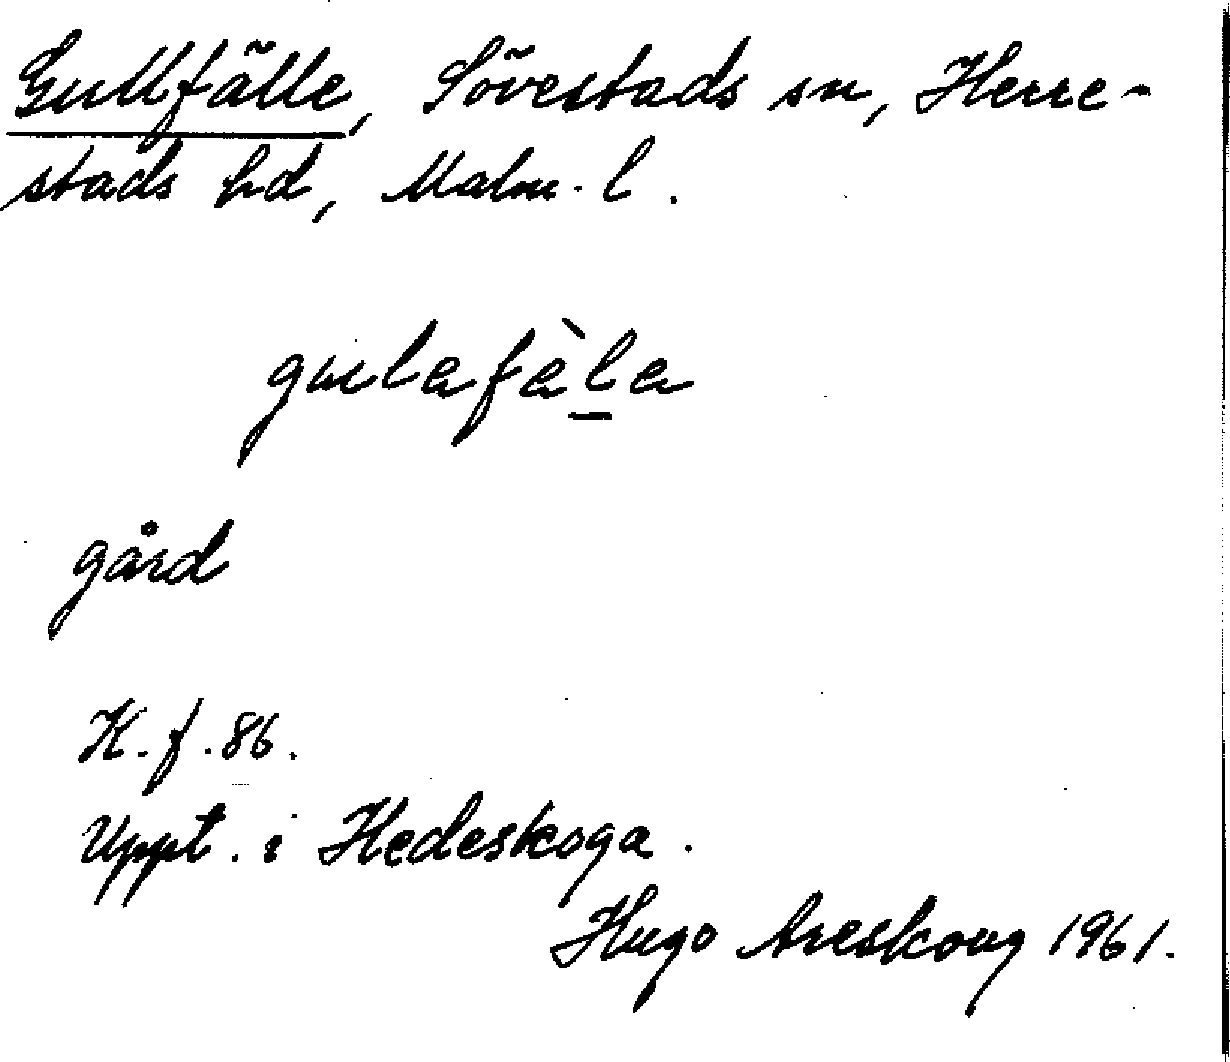 Gullfälle, Sövestads sn, Herre-
stads hd, Malm. l.
gulafäla
gård
K. f. 86.
Uppt. i Hedeskoga.
Hugo Areskoug 1961.